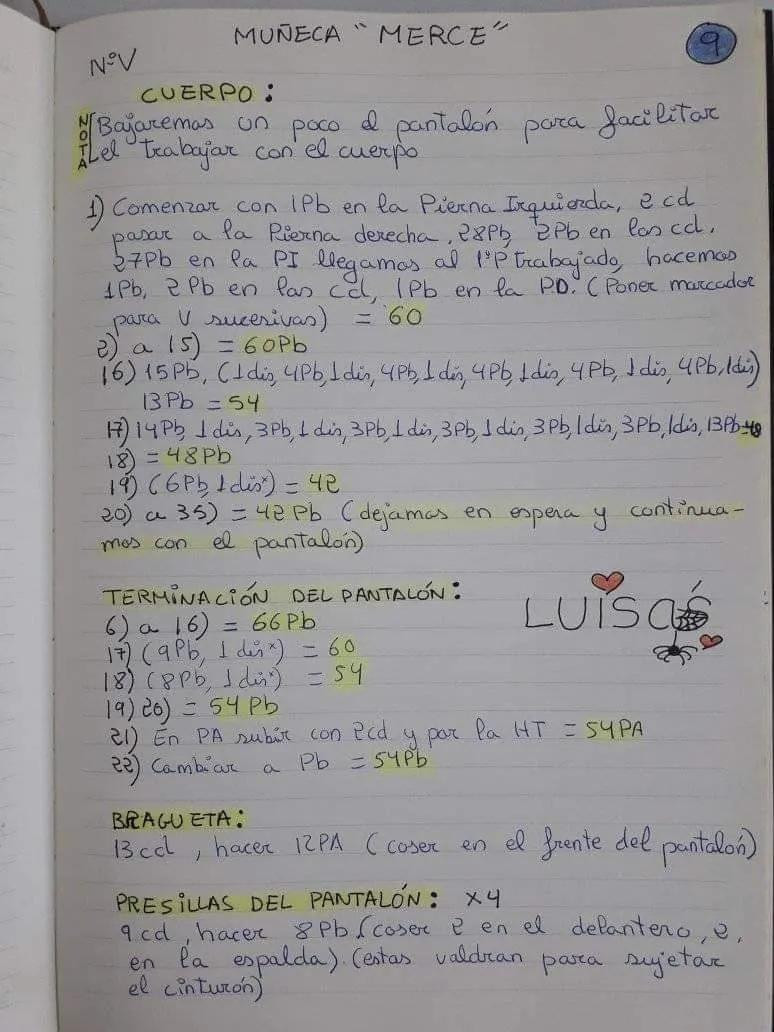 MUÑECA "MERCE"
9
NºV
CUERPO:
NOTA
Bajaremos un poco el pantalón para facilitar
el trabajar con el cuerpo
1) Comenzar con 1Pb en la Pierna Izquierda, 2 cd
pasar a la Pierna derecha, 28Pb, 2Pb en las cd,
27Pb en la PI llegamos al 1ºP trabajado, hacemos
1Pb, 2 Pb en las cd, 1Pb en la P.D. (Poner marcador
para V sucesivas) = 60
2) a 15) = 60Pb
16) 15Pb, (1 dis, 4Pb, 1 dis, 4Pb, 1 dis, 4Pb, 1 dis, 4Pb, 1 dis, 4Pb, 1 dis)
13Pb = 54
17) 14Pb, 1 dis, 3Pb, 1 dis, 3Pb, 1 dis, 3Pb, 1 dis, 3Pb, 1 dis, 3Pb, 1 dis, 13Pb=48
18) = 48Pb
19) (6Pb, 1 dis*) = 42
20) a 35) = 42 Pb (dejamos en espera y continua-
mos con el pantalón)
TERMINACIÓN DEL PANTALÓN:
LUISGÉ
6) a 16) = 66Pb
17) (9Pb, 1 dis*) = 60
18) (8Pb, 1 dis*) = 54
19) 20) = 54 Pb
21) En PA subir con 2cd y por la HT = 54PA
22) Cambiar a Pb = 54Pb
BRAGUETA:
13cd, hacer 12PA (coser en el frente del pantalón)
PRESILLAS DEL PANTALÓN: x4
9cd, hacer 8Pb (coser 2 en el delantero, 2,
en la espalda). (estas valdran para sujetar
el cinturón)